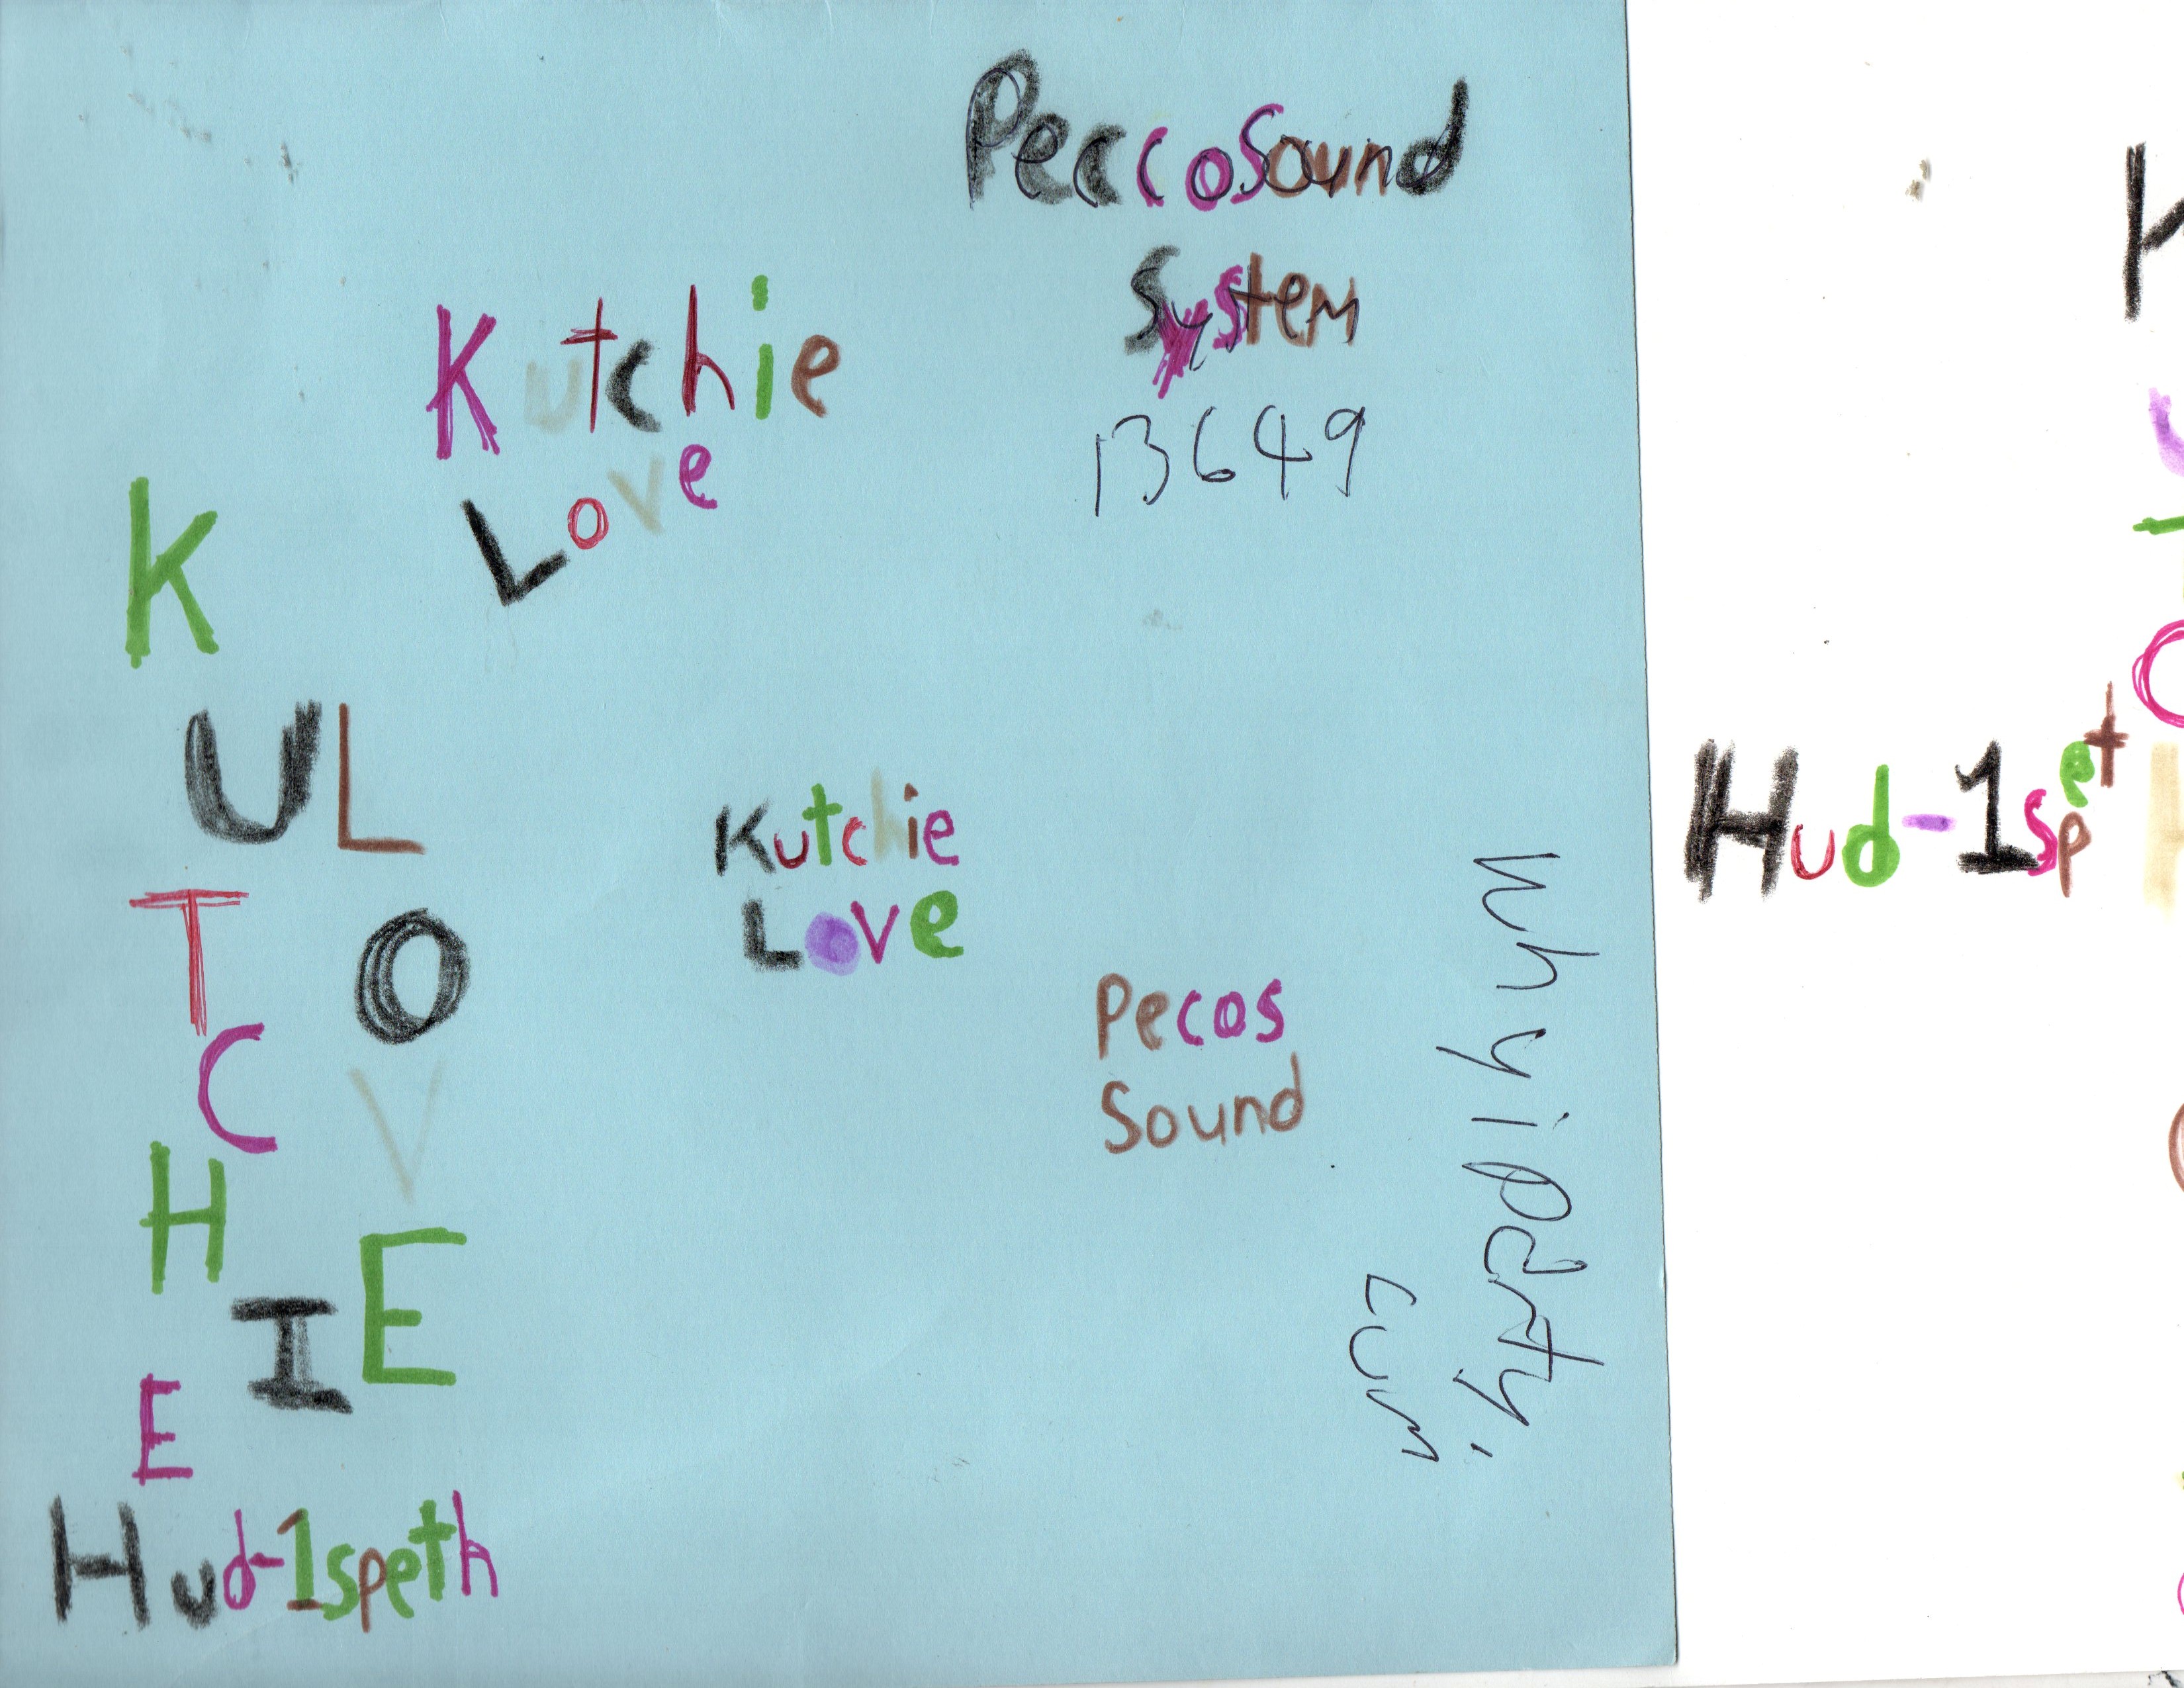 PeccoSound
System
13649
Kutchie
Love
KUTCHIE
LOVE
Kutchie
Love
Pecos
Sound
Hud-1speth
Hud-1spet